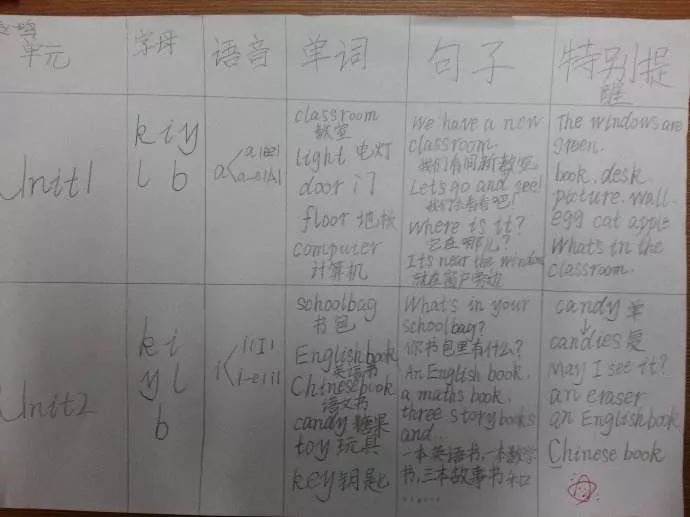 单元 字母 语音 单词 句子 特别提醒
Unit1
k i y
l b
a
a |æ|
a-e
classroom
教室
light 电灯
door 门
floor 地板
computer
计算机
We have a new
classroom.
我们有间新教室
Let's go and see!
我们去看看吧!
Where is it?
它在哪儿?
It's near the window
就在窗户旁边
The windows are
green.
book. desk.
picture. wall.
egg cat apple
What's in the
classroom.
Unit2
k i
y l
b
i
i |I|
i-e
schoolbag
书包
English book
英语书
Chinese book
语文书
candy 糖果
toy 玩具
key 钥匙
What's in your
schoolbag?
你书包里有什么?
An English book,
a maths book,
three storybooks
and...
一本英语书,一本数学
书,三本故事书和
......
candy 单
↓
candies 复
May I see it?
an eraser
an English book
Chinese book